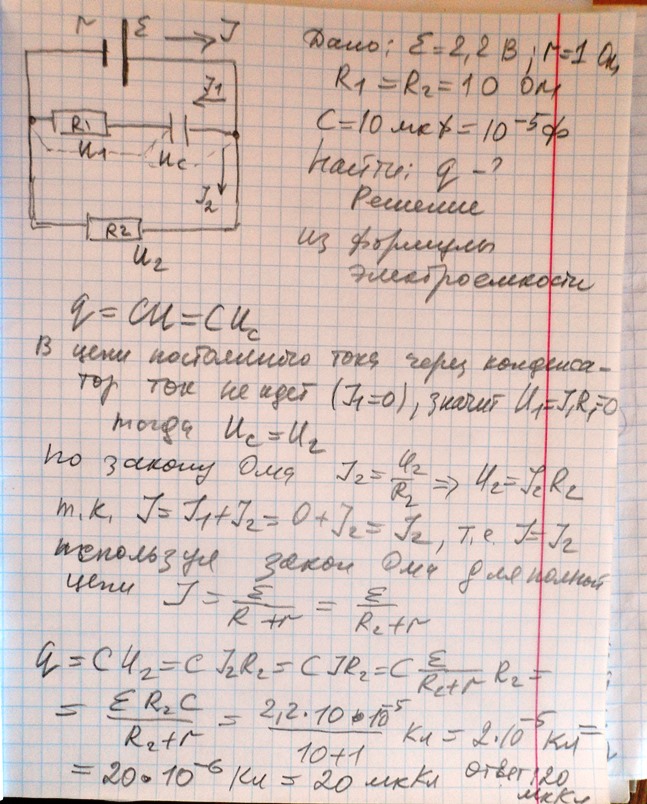 r ε → I
I1
R1
U1 Uc
I2
R2
U2
Дано: ε=2,2 В; r=1 Ом
R1=R2=10 Ом
C=10 мкф=10⁻⁵ф
Найти: q-?
Решение
из формулы
электроемкости
q=CU=CUc
В цепи постоянного тока через конденса-
тор ток не идет (I1=0), значит U1=I1R1=0
тогда Uc=U2
по закону Ома I2=U2/R2 ⇒ U2=I2R2
т.к. I=I1+I2=0+I2=I2, т.е. I=I2
используя закон Ома для полной
цепи I=ε/(R+r)=ε/(R2+r)
q=CU2=CI2R2=CIR2=C ε/(R2+r) R2=
= εR2C/(R2+r) = 2,2·10·10⁻⁵/(10+1) Кл=2·10⁻⁵ Кл=
=20·10⁻⁶ Кл=20 мкКл ответ: 20
мкКл